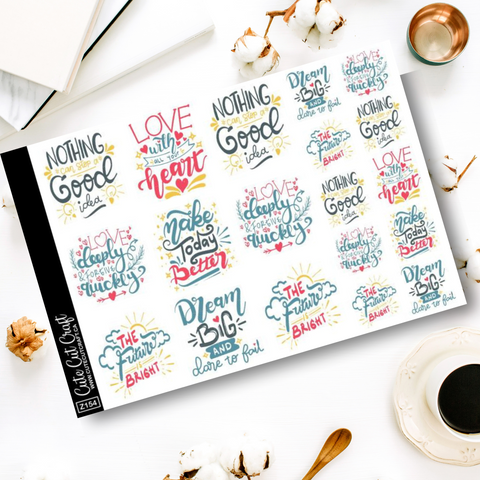 NOTHING
can stop a
Good
idea
LOVE
with
ALL YOUR
heart
NOTHING
can stop a
Good
idea
Dream
BIG
AND
dare to fail
LOVE
deeply
& FORGIVE
quickly
THE
Future
is
BRIGHT
NOTHING
can stop a
Good
idea
LOVE
deeply
& FORGIVE
quickly
Make
Today
Better
LOVE
deeply
& FORGIVE
quickly
NOTHING
can stop a
Good
idea
LOVE
with
ALL YOUR
heart
LOVE
deeply
& FORGIVE
quickly
Make
Today
Better
THE
Future
is
BRIGHT
Dream
BIG
AND
dare to fail
THE
Future
is
BRIGHT
THE
Future
is
BRIGHT
Dream
BIG
AND
dare to fail
Cute Cut Craft
WWW.CUTECUTCRAFT.CA
Z154